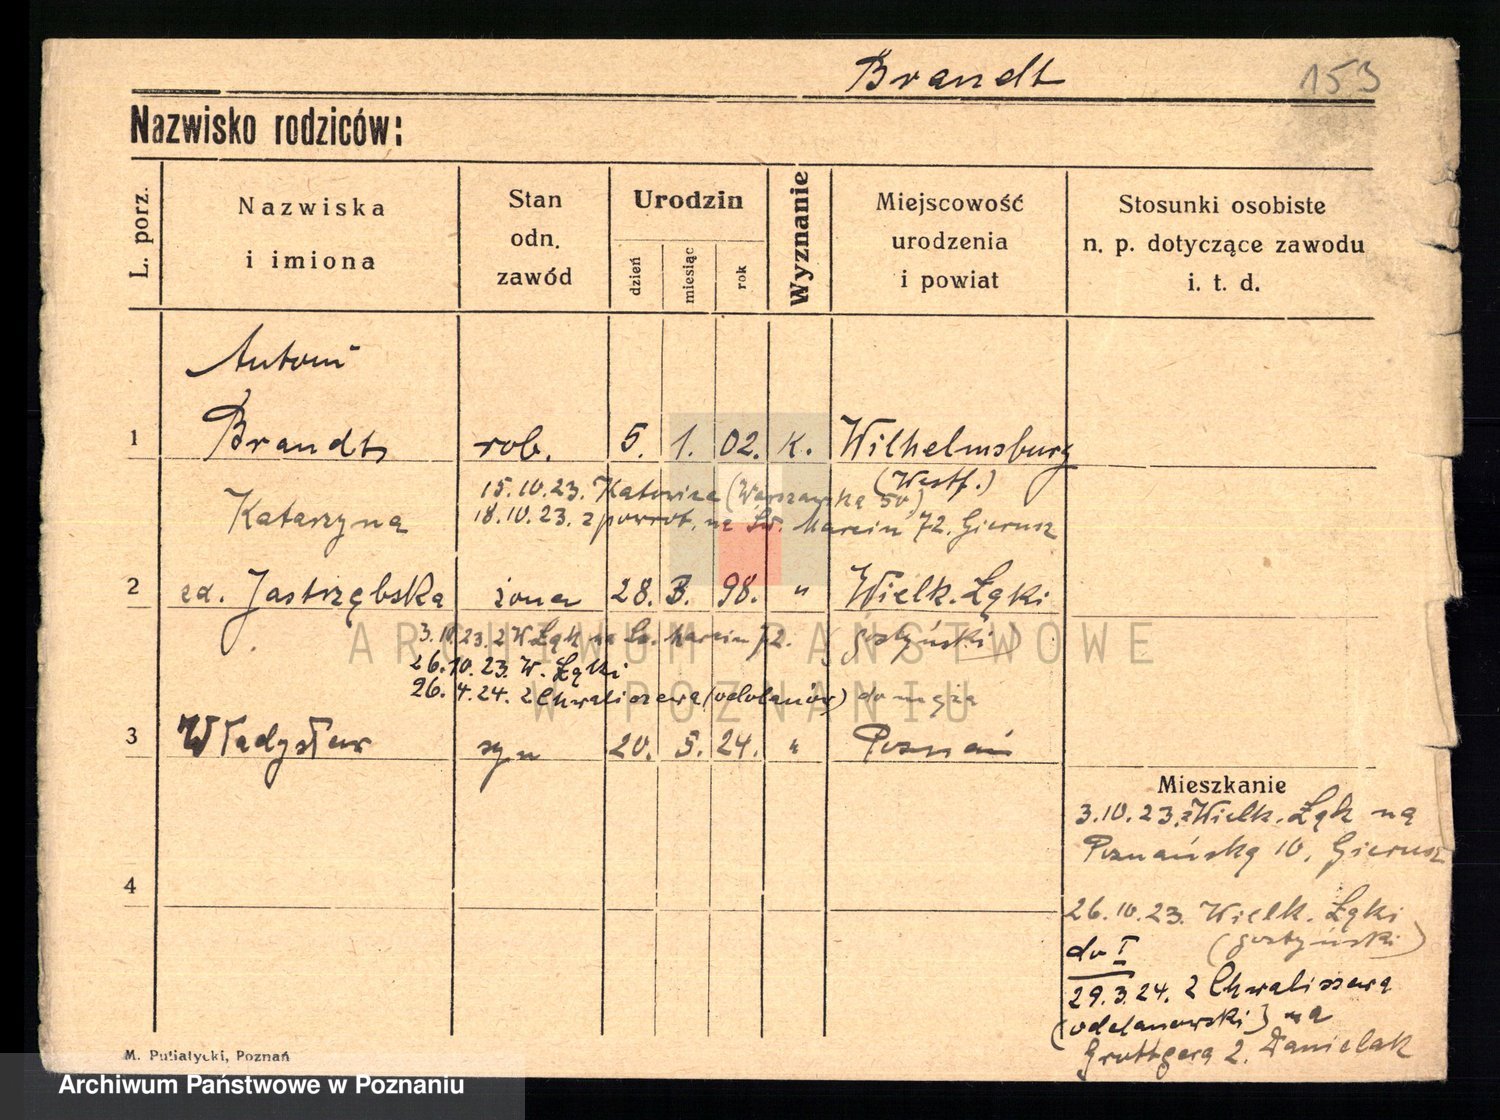 Brandt
153
Nazwisko rodziców:
L. porz.
Nazwiska
i imiona
Stan
odn.
zawód
Urodzin
dzień
miesiąc
rok
Wyznanie
Miejscowość
urodzenia
i powiat
Stosunki osobiste
n. p. dotyczące zawodu
i. t. d.
Antoni
1 Brandt, rob. 5. 1. 02. K. Wilhelmsburg
(Westf.)
15.10.23. Katowice (Warszawska 50)
18.10.23. z powrot. na Św. Marcin 72. Gierusz
Katarzyna
2 zd. Jastrzębska żona 28. 3. 98. " Wielk. Łęki
gostyński)
3.10.23. z W. Łęk na Św. Marcin 72.
26.10.23. W. Łęki
26.4.24. z Chwaliszewa (odolanów) do męża
3 Władysław syn 20. 5. 24. " Poznań
Mieszkanie
3.10.23. z Wielk. Łęk na
Poznańską 10, Gierusz
4
26.10.23. Wielk. Łęki
(gostyński)
do I
29.3.24. z Chwaliszewa
(odolanowski) na
Grottgera 2. Danielak
M. Putiatycki, Poznań
ARCHIWUM PAŃSTWOWE
W POZNANIU
Archiwum Państwowe w Poznaniu